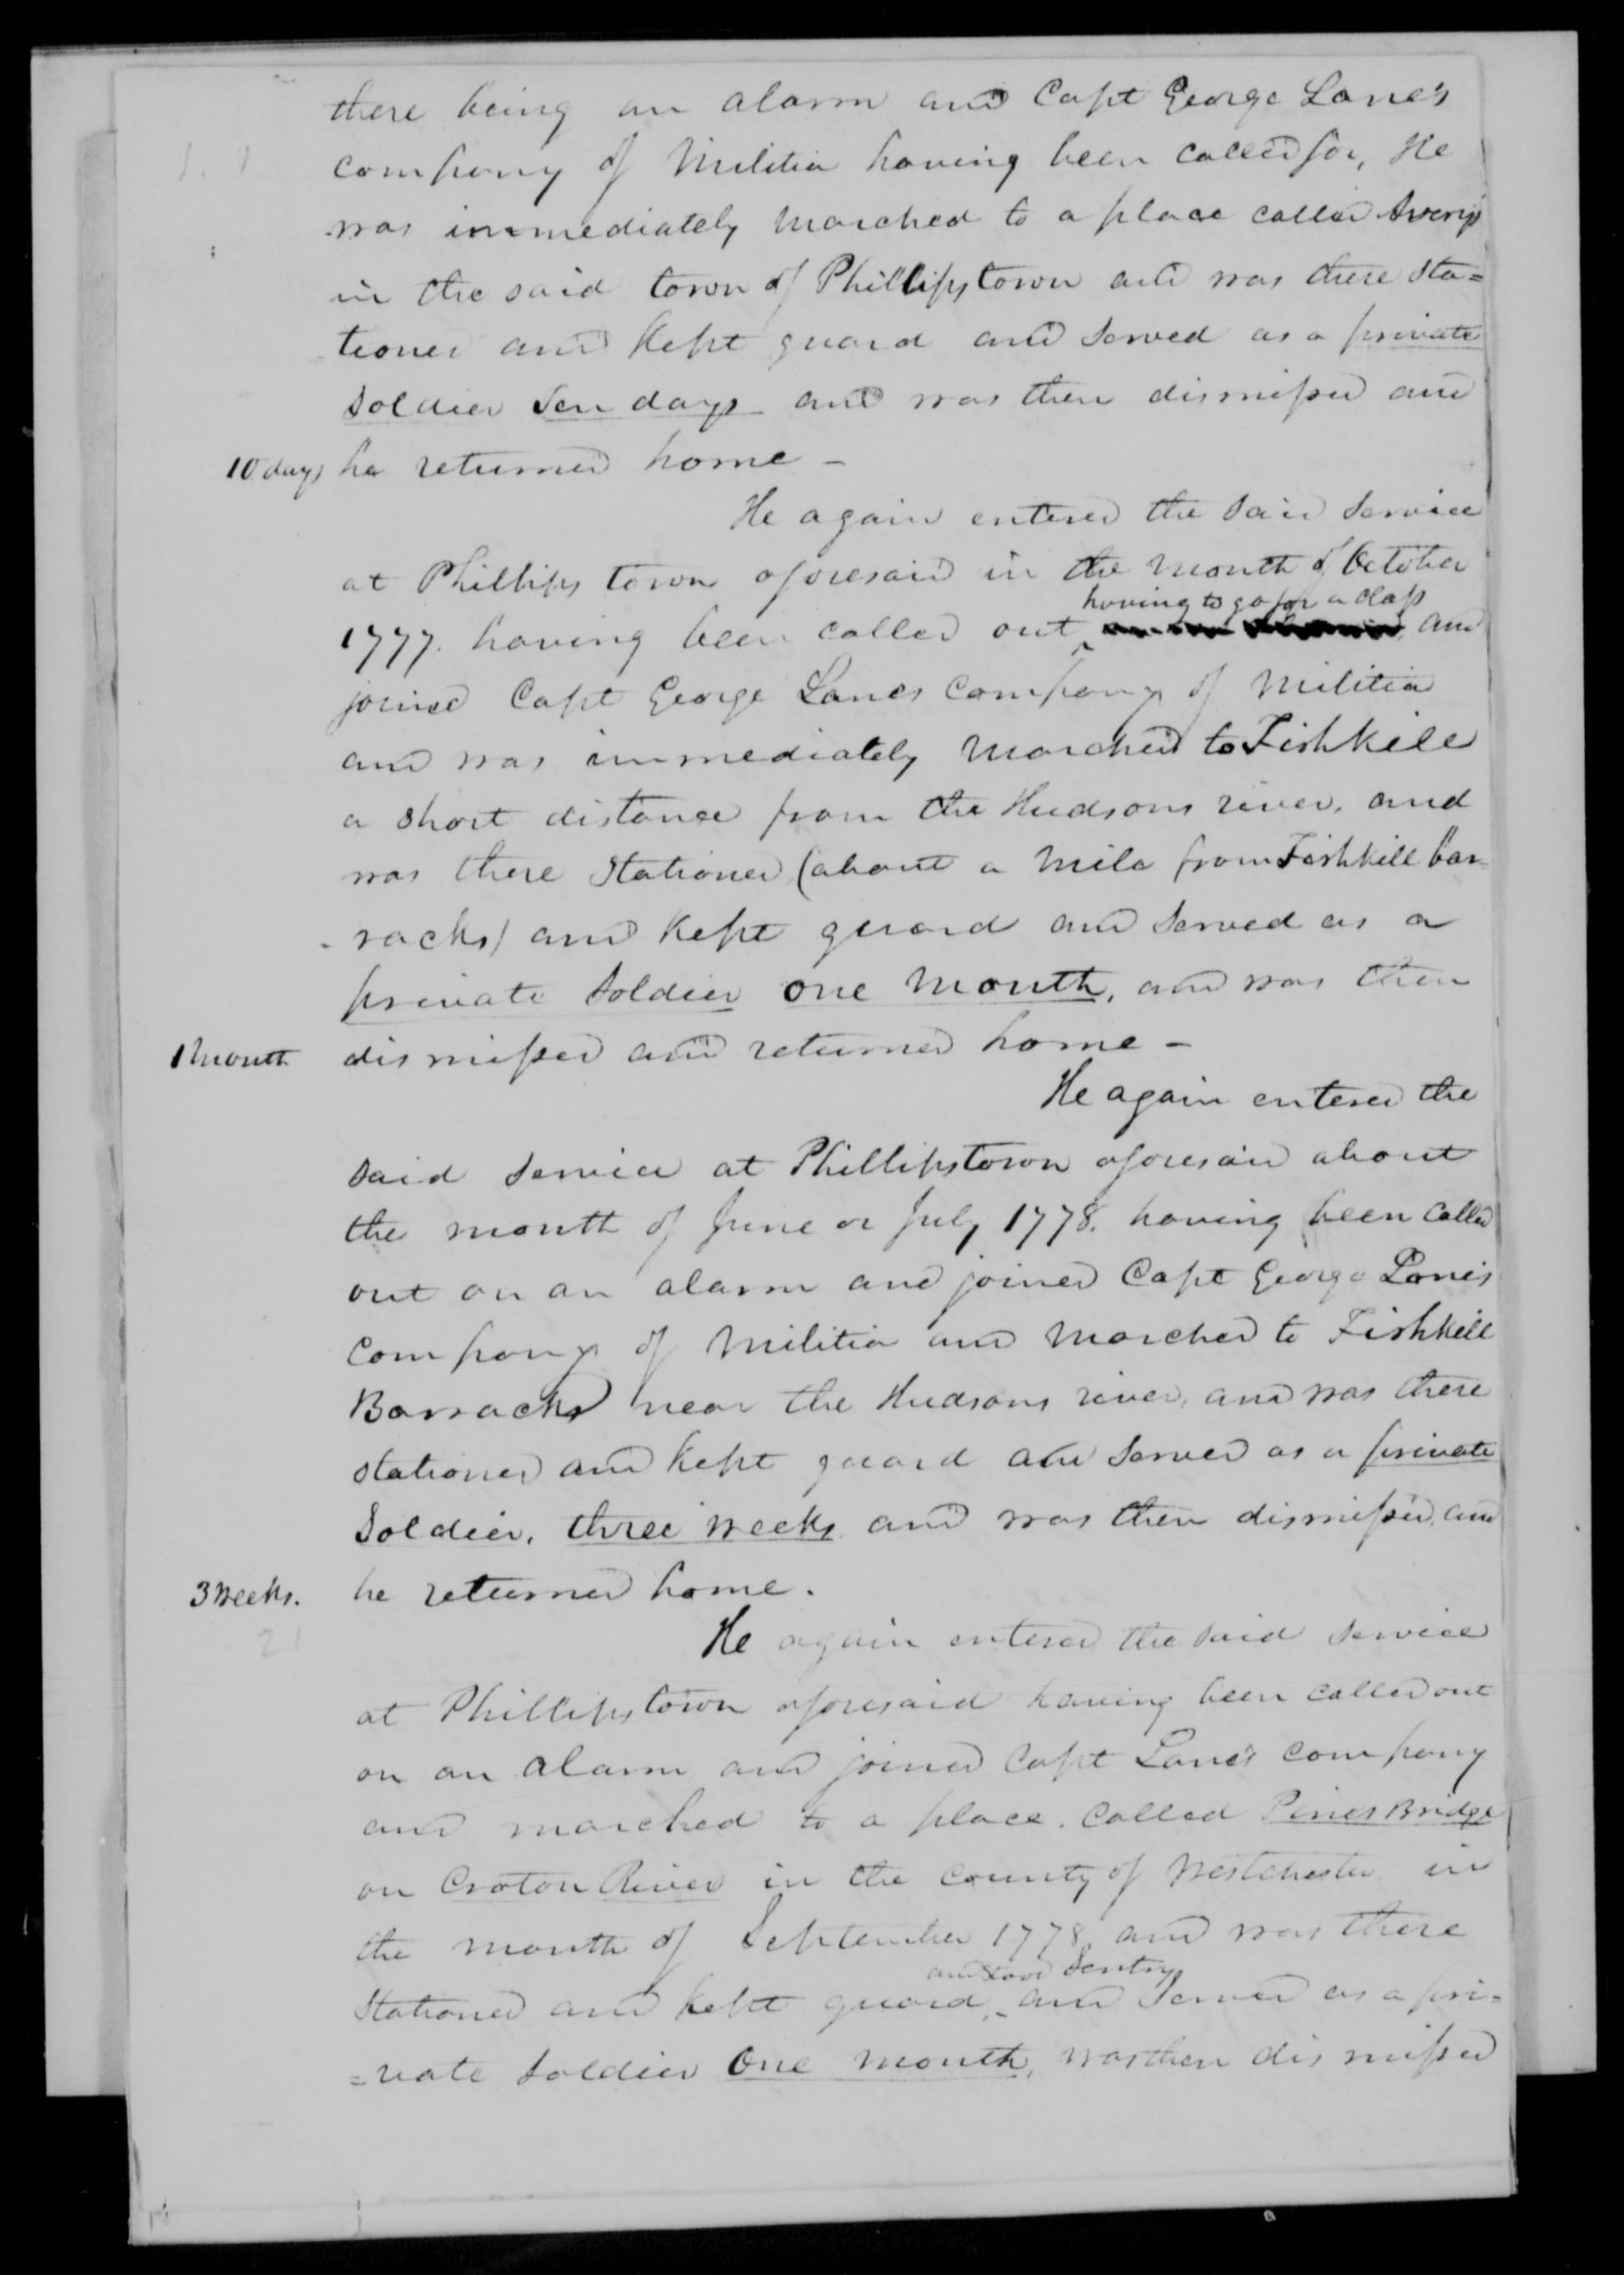 there being an alarm and Capt George Lane's
company of Militia having been called for, He
was immediately marched to a place called
in the said town of Phillipstown and was there sta=
tioned and kept guard and served as a private
soldier Ten days and was then dismissed and
10 days he returned home -
He again entered the said service
at Phillips town aforesaid in the month of October
having to go for a class
1777. having been called out and
joined Capt George Lanes company of Militia
and was immediately marched to Fishkill
a short distance from the Hudsons river, and
was there Stationed (about a mile from Fishkill bar-
-racks) and kept guard and served as a
private soldier one month, and was then
1 month dismissed and returned home -
He again entered the
said service at Phillipstown aforesaid about
the month of June or July 1778. having been called
out on an alarm and joined Capt George Lane's
company of Militia and marched to Fishkill
Barracks near the Hudsons river, and was there
stationed and kept guard and served as a private
soldier, three weeks and was then dismissed, and
3 weeks. he returned home.
21
He again entered the said service
at Phillipstown aforesaid having been called out
on an alarm and joined Capt Lane's company
and marched to a place. called Pines Bridge
on Croton River in the county of Westchester in
the month of September 1778, and was there
and stood Sentry
Stationed and kept guard, and served as a pri=
=vate soldier One month, was then dismissed